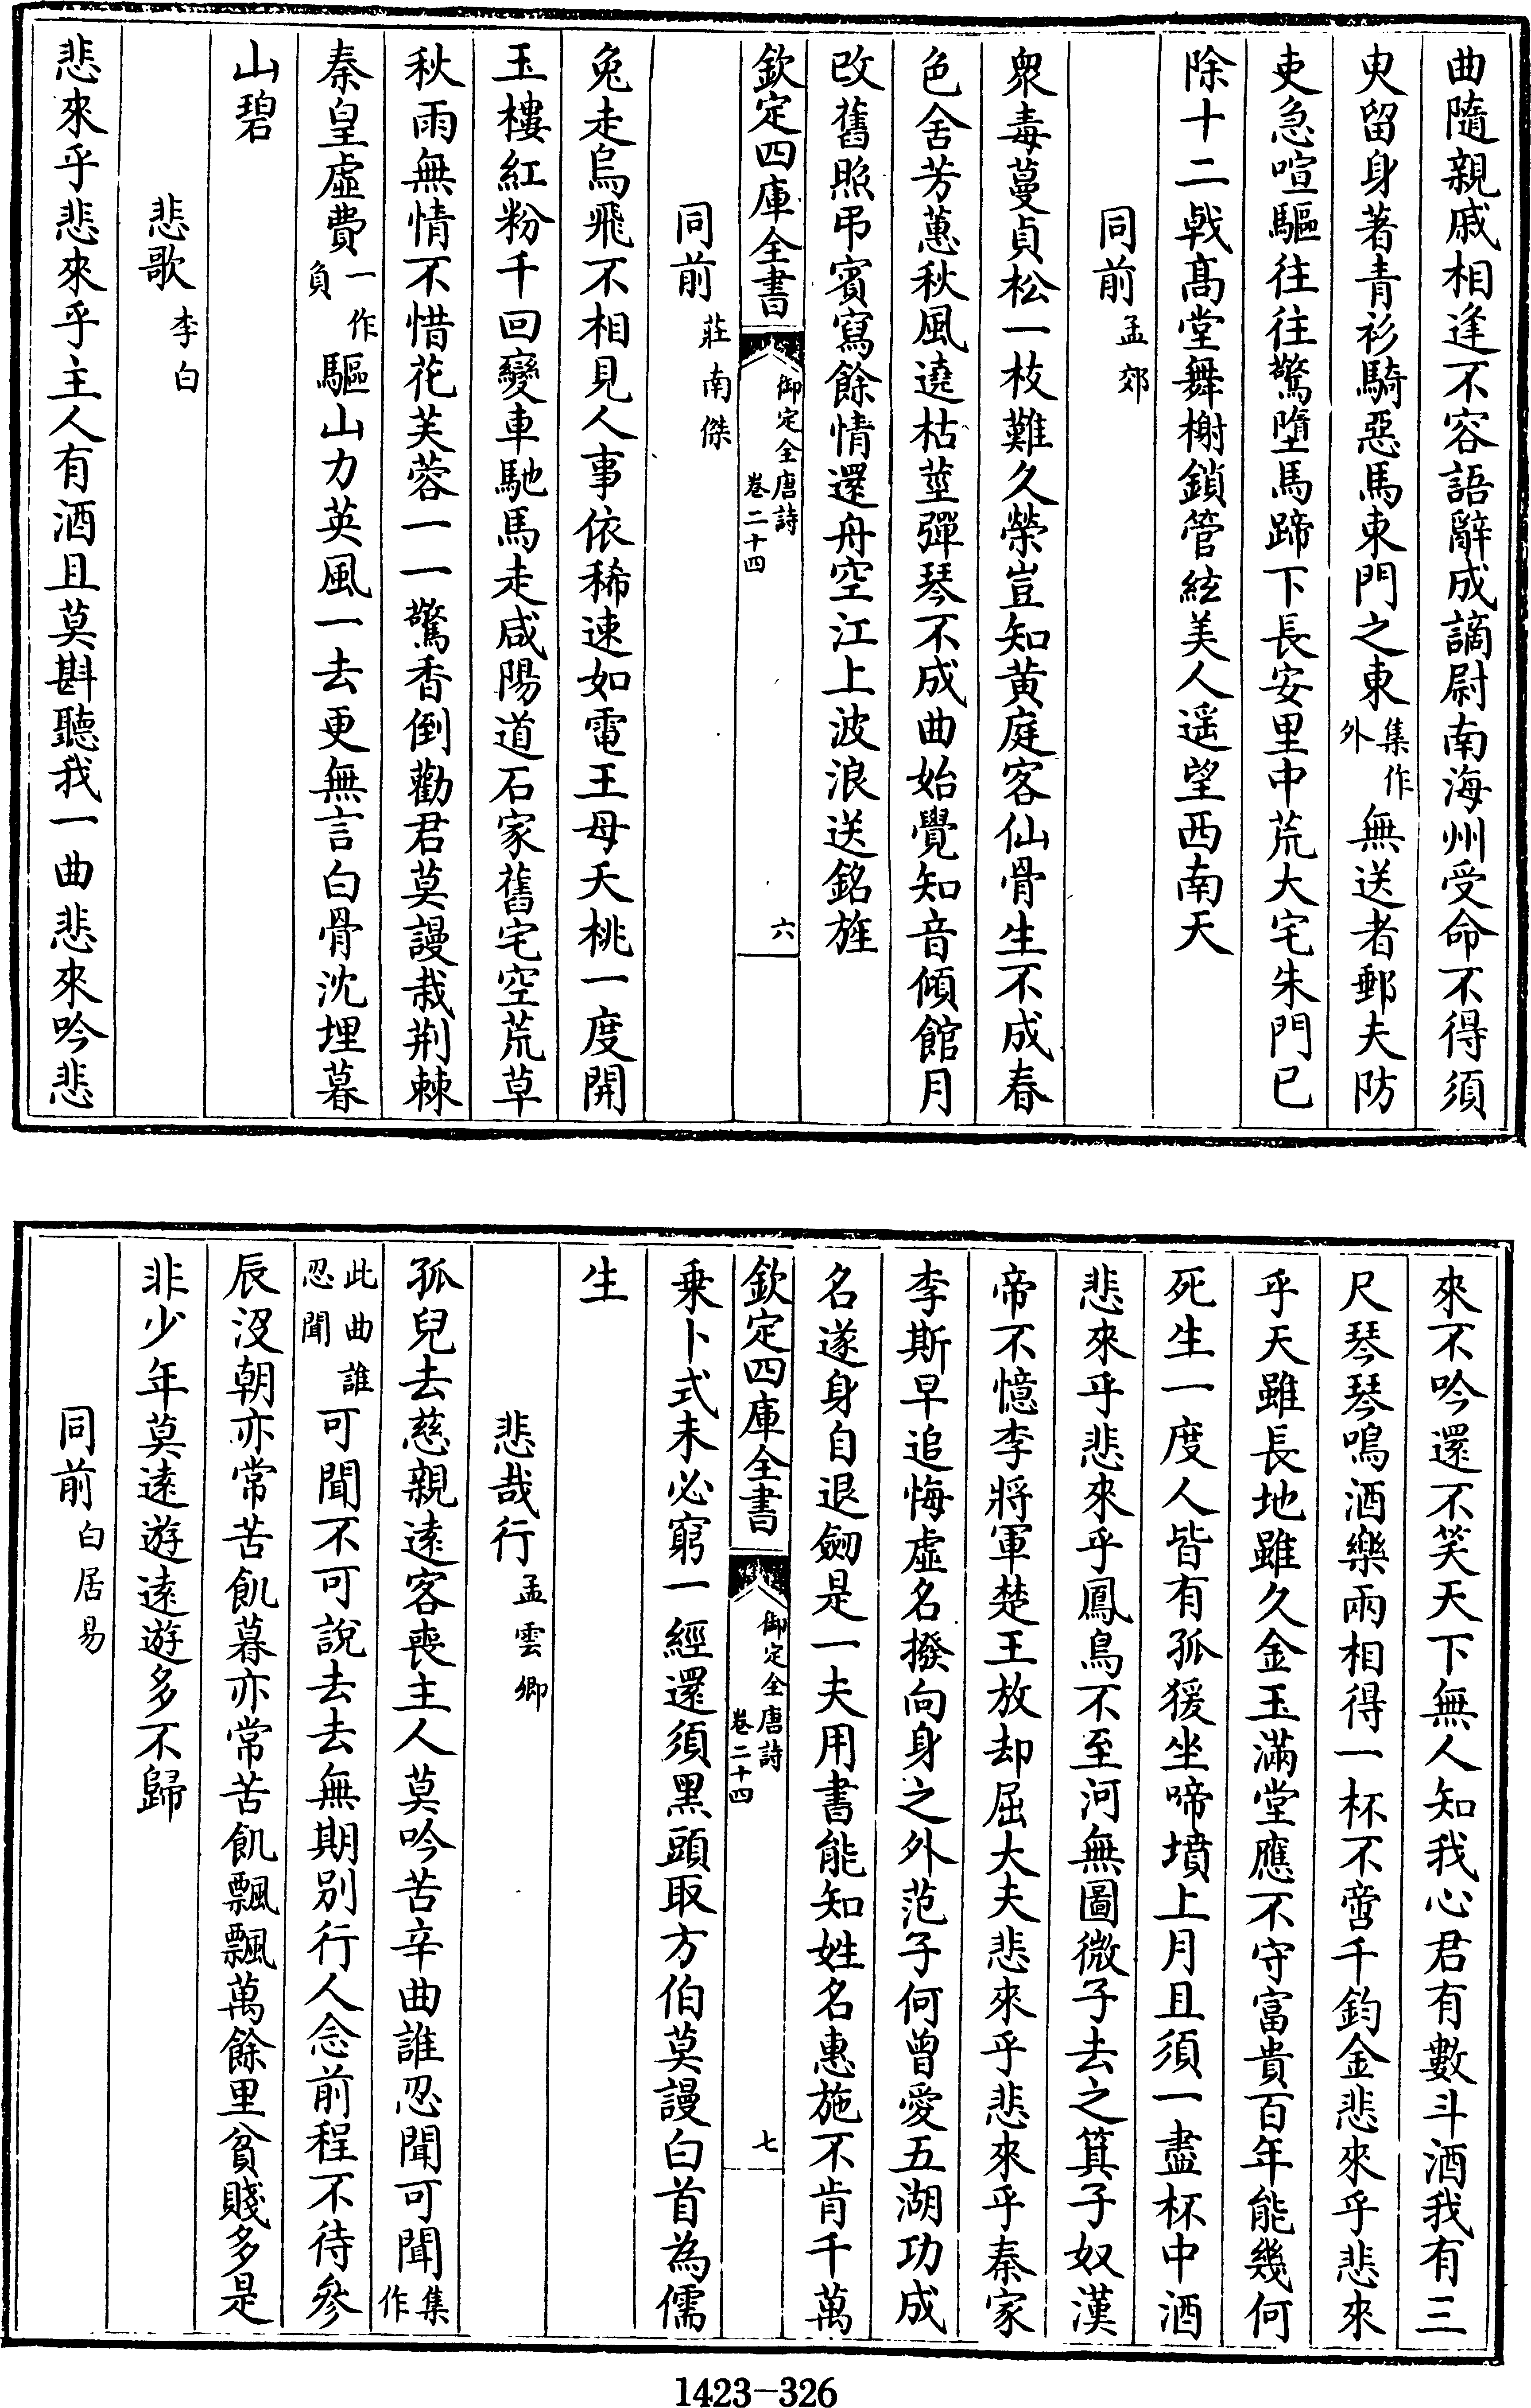 曲隨親戚相逢不容語辭成謫尉南海州受命不得須
臾留身著青衫騎惡馬東門之東集作外無送者郵夫防
吏急喧驅往往驚墮馬蹄下長安里中荒大宅朱門已
除十二戟髙堂舞榭鎖管絃美人遥望西南天
同前孟郊
衆毒蔓貞松一枝難久榮豈知黄庭客仙骨生不成春
色舍芳蕙秋風遶枯莖彈琴不成曲始覺知音傾館月
改舊照弔賓寫餘情還舟空江上波浪送銘旌
欽定四庫全書 御定全唐詩 卷二十四 六
同前莊南傑
兔走烏飛不相見人事依稀速如電王母夭桃一度開
玉樓紅粉千回變車馳馬走咸陽道石家舊宅空荒草
秋雨無情不惜花芙蓉一一驚香倒勸君莫謾栽荆棘
秦皇虚費一作負驅山力英風一去更無言白骨沈埋暮
山碧
悲歌李白
悲來乎悲來乎主人有酒且莫斟聽我一曲悲來吟悲
來不吟還不笑天下無人知我心君有數斗酒我有三
尺琴琴鳴酒樂兩相得一杯不啻千鈞金悲來乎悲來
乎天雖長地雖久金玉滿堂應不守富貴百年能幾何
死生一度人皆有孤猨坐啼墳上月且須一盡杯中酒
悲來乎悲來乎鳳鳥不至河無圖微子去之箕子奴漢
帝不憶李將軍楚王放却屈大夫悲來乎悲來乎秦家
李斯早追悔虚名撥向身之外范子何曾愛五湖功成
名遂身自退劒是一夫用書能知姓名惠施不肯千萬
欽定四庫全書 御定全唐詩 卷二十四 七
乗卜式未必窮一經還須黑頭取方伯莫謾白首為儒
生
悲哉行孟雲卿
孤兒去慈親逺客喪主人莫吟苦辛曲誰忍聞可聞集作
此曲誰忍聞可聞不可說去去無期别行人念前程不待參
辰沒朝亦常苦飢暮亦常苦飢飄飄萬餘里貧賤多是
非少年莫逺遊逺遊多不歸
同前白居易
1423-326